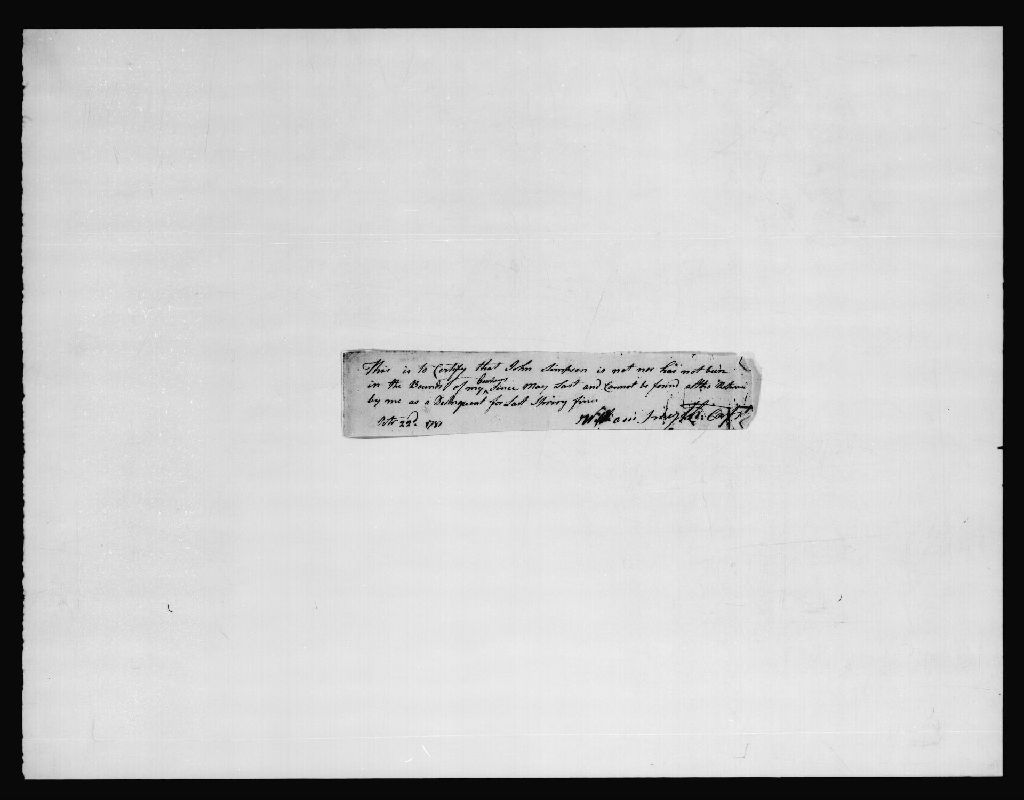 This is to Certify that John Simpson is not nor has not been
in the Bounds of my since May Last and Cannot be found
by me as a Delinquent for Last Spring fine
Octr 22d 1781
William Capt